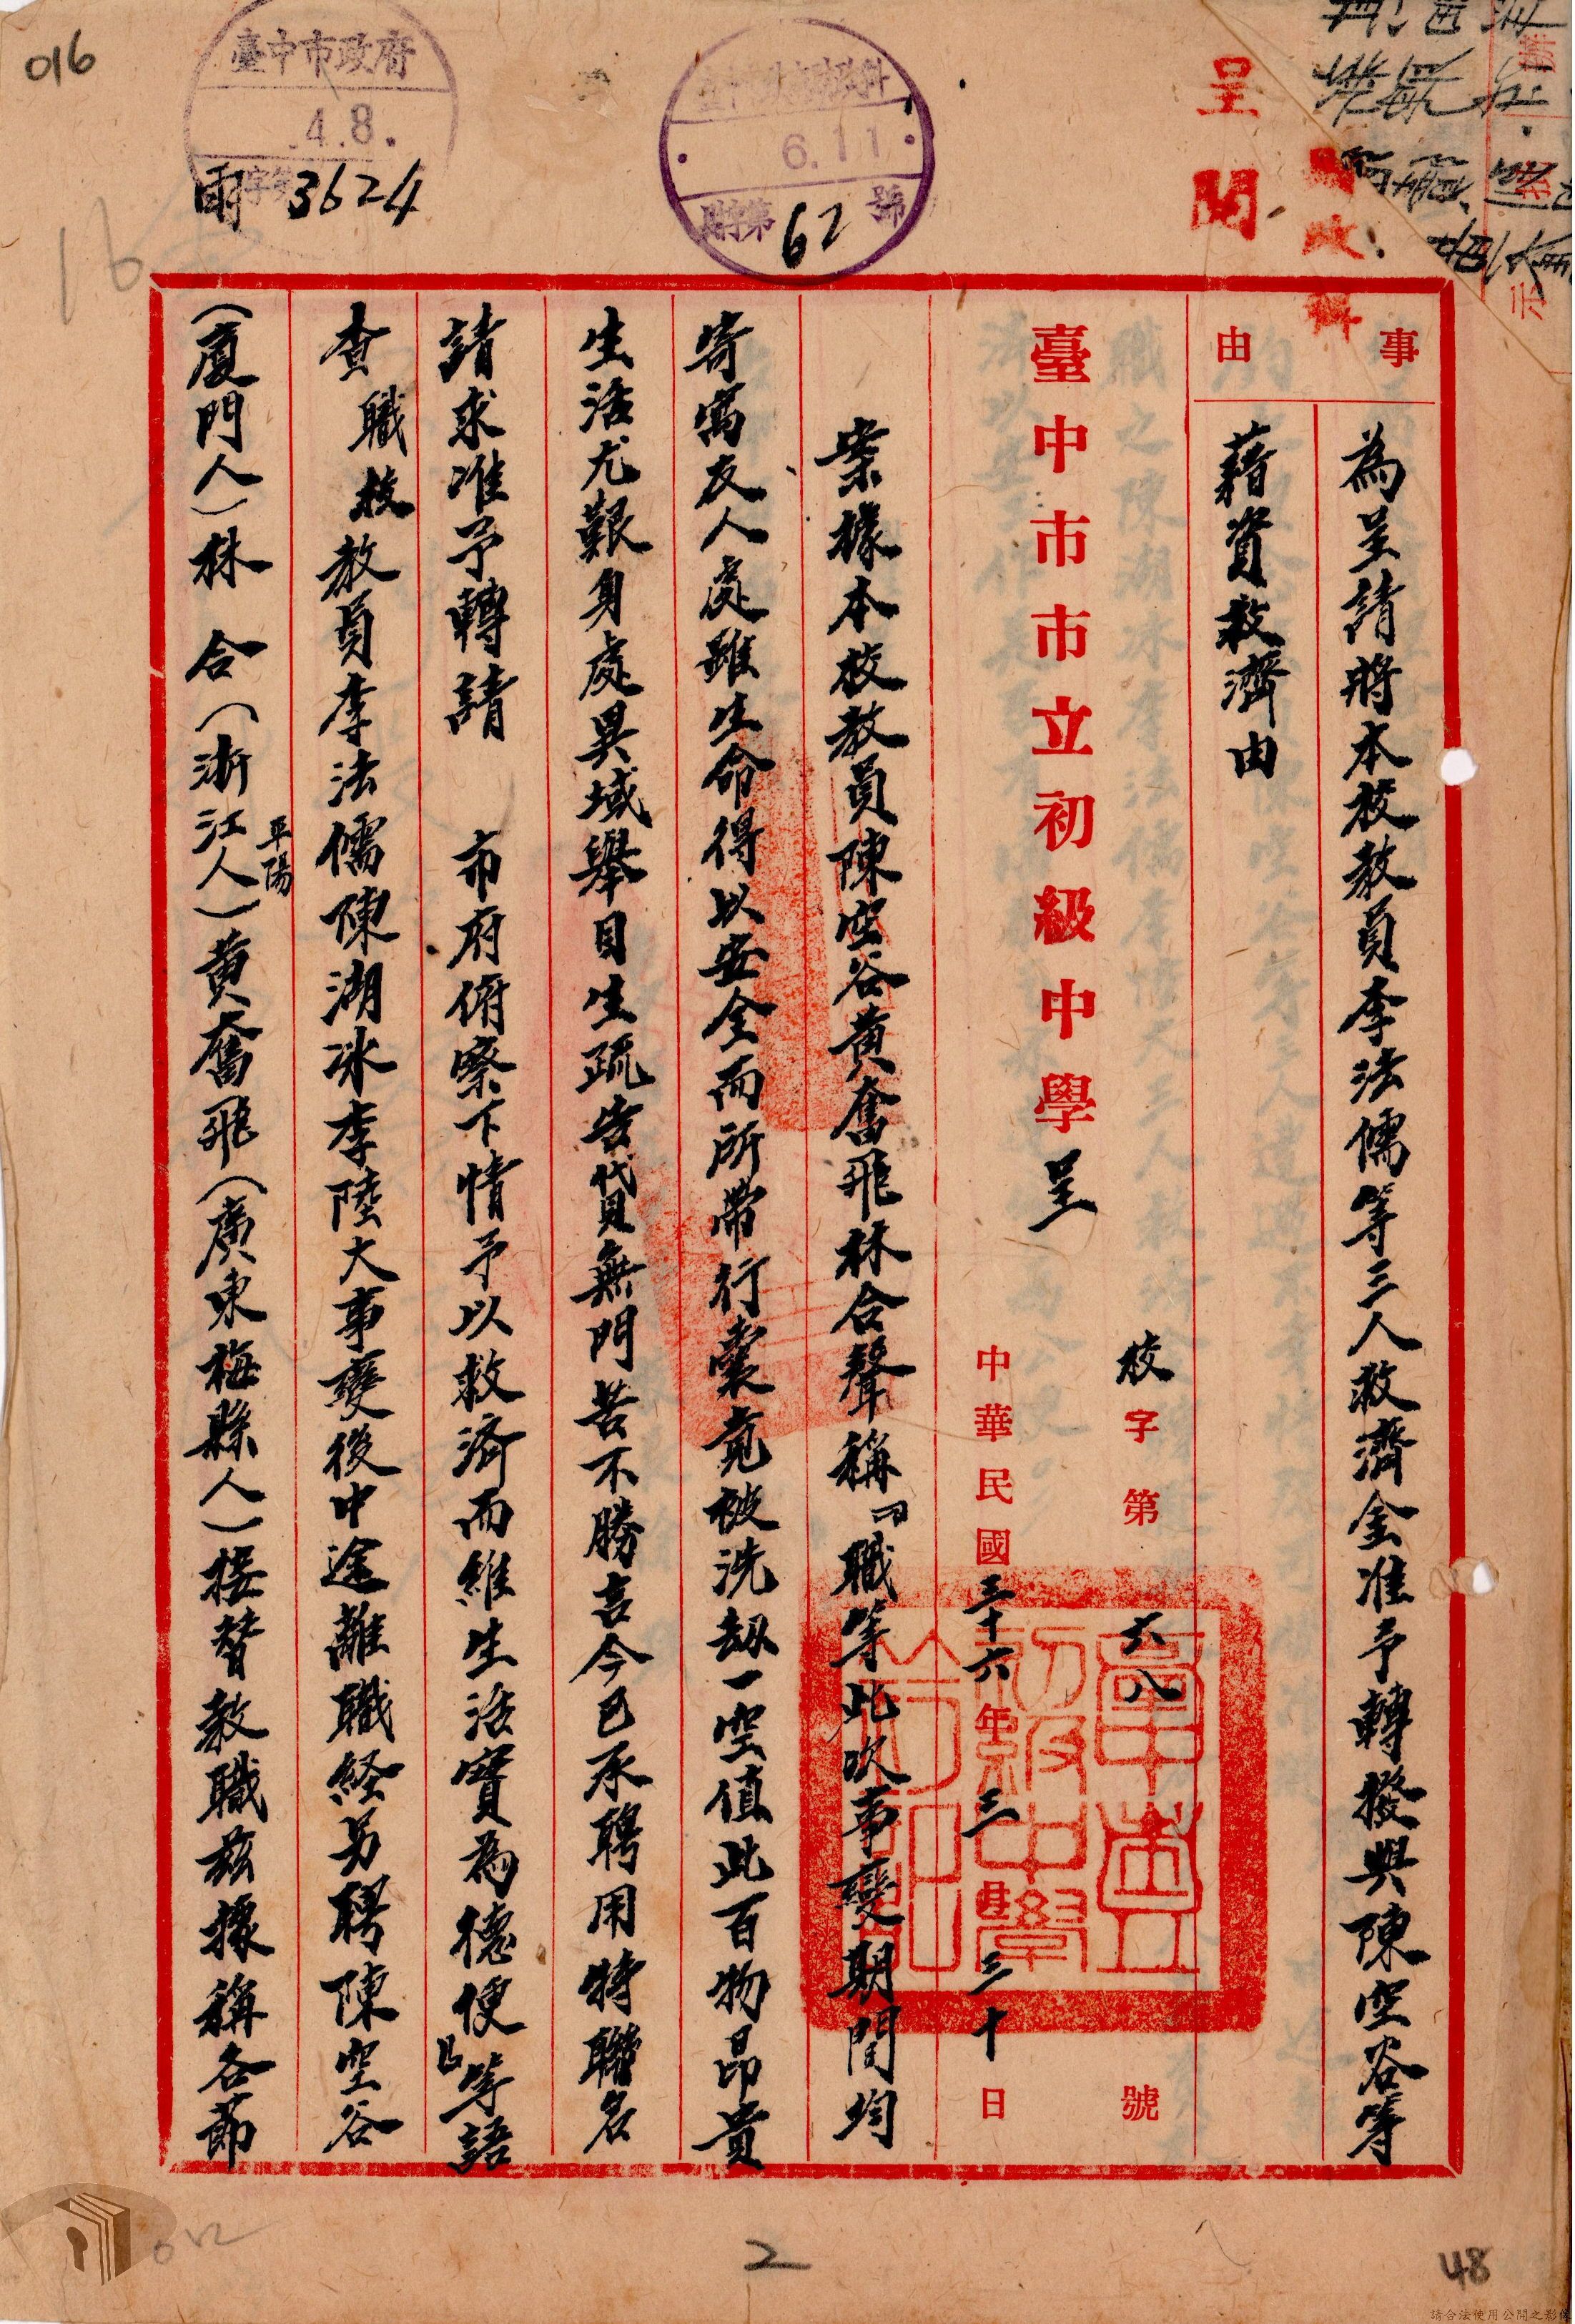 016
臺中市政府
4.8.
字第
雨 3624
6.11
財字第62號
16
呈閱
財政科
事由
為呈請將本校教員李法儒等三人救濟金准予轉撥與陳空谷等
藉資救濟由
臺中市市立初級中學呈
校字第六八號
中華民國三十六年三月三十日
案據本校教員陳空谷黃奮飛林合聲稱「職等此次事變期間均
寄寓友人處雖生命得以安全而所帶行囊竟被洗劫一空值此百物昂貴
生活尤艱身處異域舉目生疏告貸無門苦不勝言今已承聘用特聯名
請求准予轉請 市府俯察下情予以救濟而維生活實為德便」等語
查職校教員李法儒陳湖冰李陸大事變後中途離職経另聘陳空谷
(廈門人)林合(浙江平陽人)黃奮飛(廣東梅縣人)接替教職茲據稱各節
2
48
請合法使用公開之影像